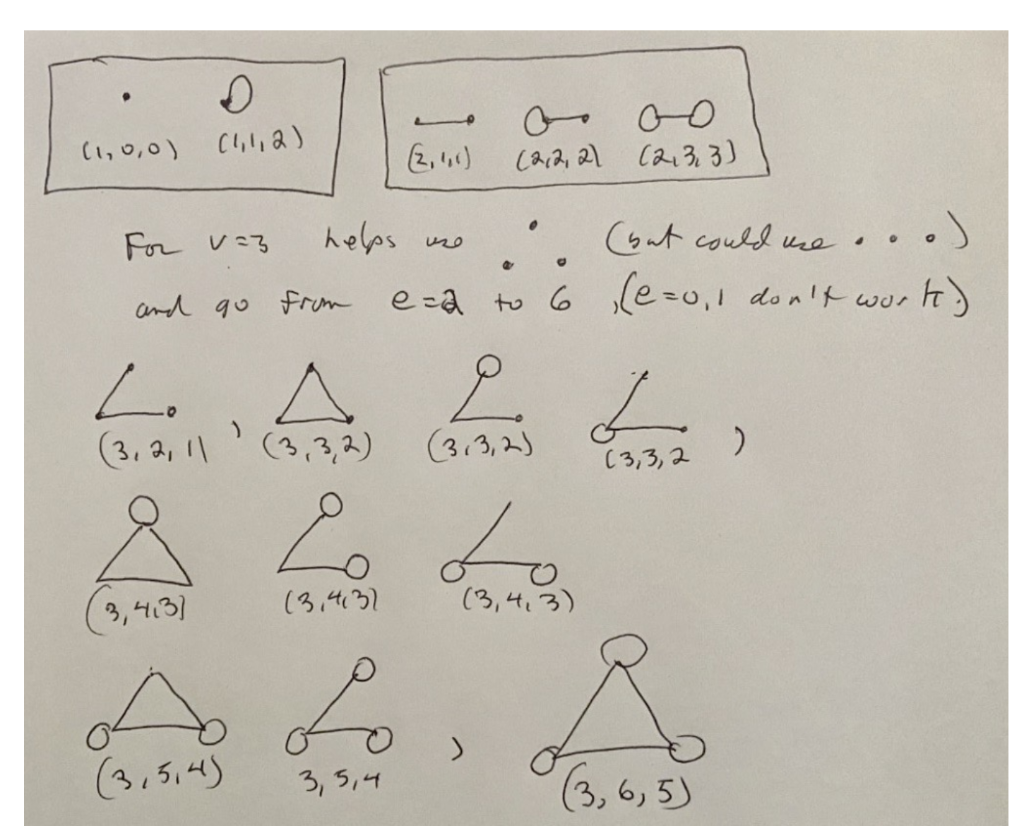 (1,0,0) (1,1,2) (2,1,1) (2,2,2) (2,3,3)
For v=3 helps use (but could use . . .)
and go from e=2 to 6, (e=0,1 don't work)
(3,2,1) , (3,3,2) (3,3,2) (3,3,2 ,
(3,4,3) (3,4,3) (3,4,3)
(3,5,4) 3,5,4 , (3,6,5)